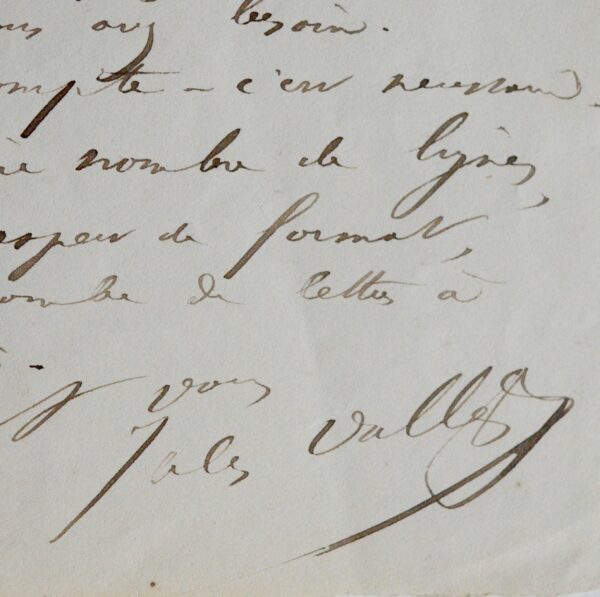 avez besoin.
compte - c'est nécessaire -
nombre de lignes,
de format,
nombre de lettres à
à vous
Jules Vallès